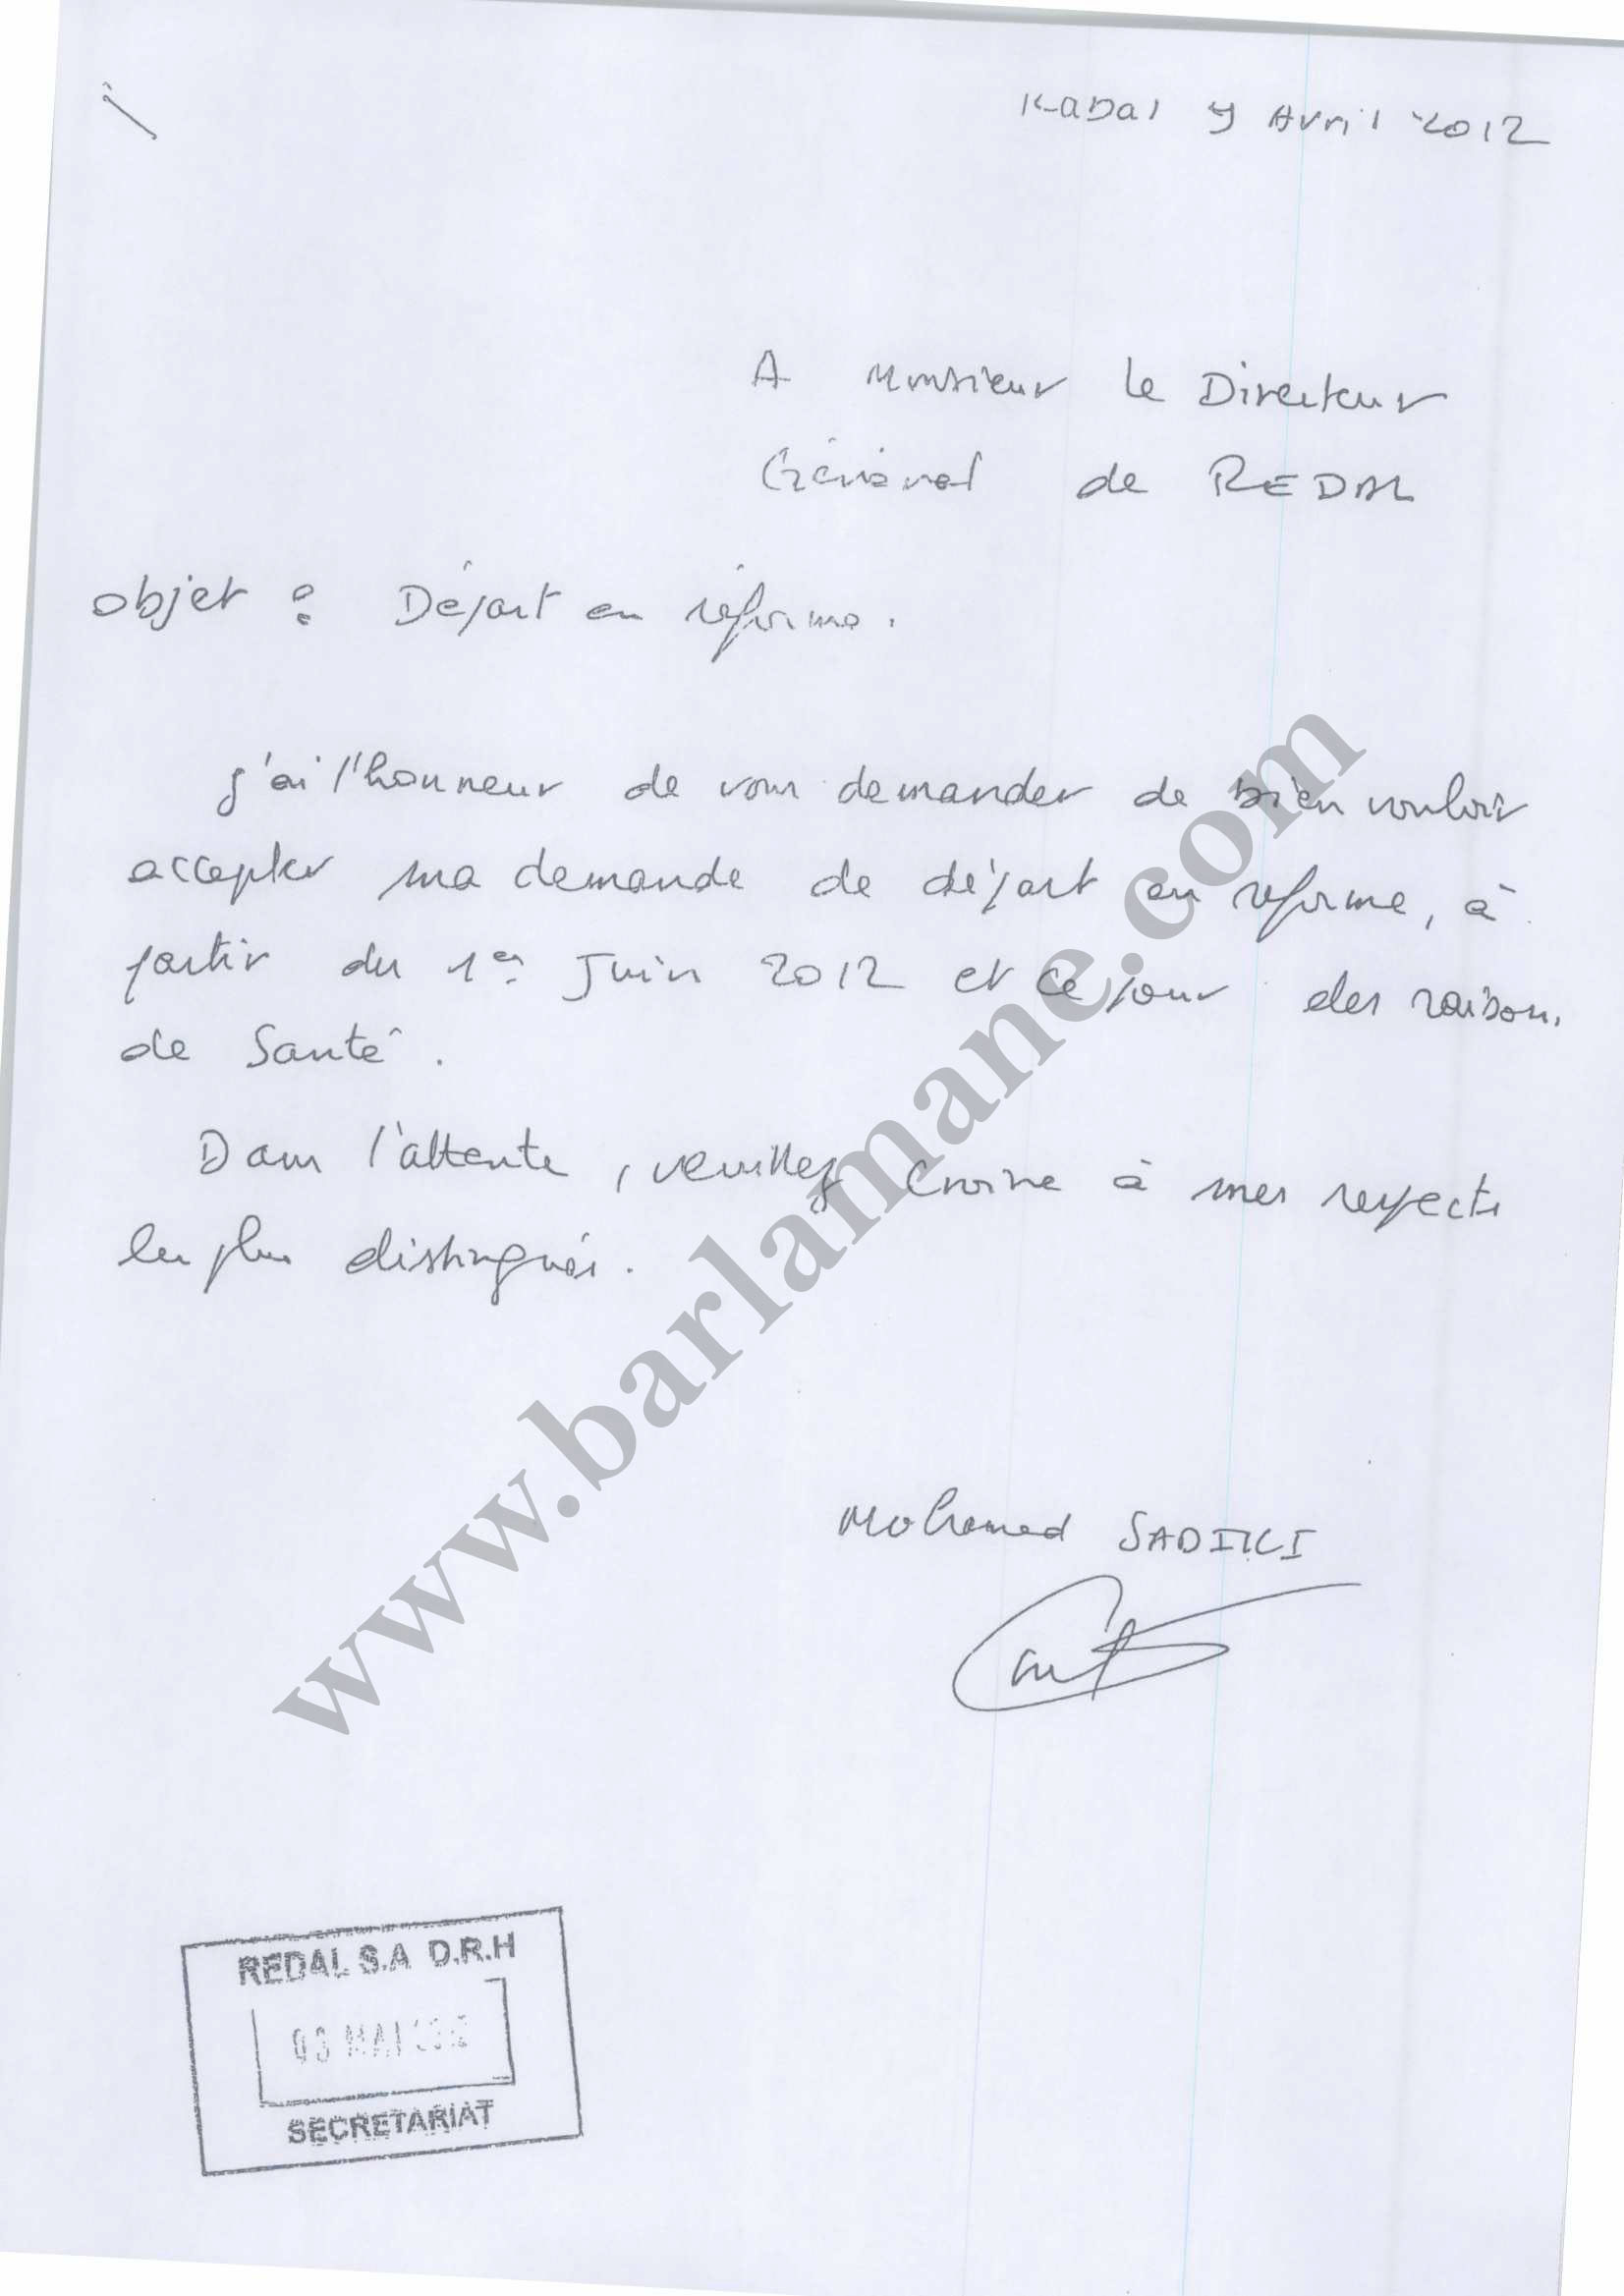 Rabat 9 Avril 2012
A Monsieur le Directeur
Général de REDAL
Objet : Départ en réforme.
J'ai l'honneur de vous demander de bien vouloir
accepter ma demande de départ en réforme, à
partir du 1er Juin 2012 et ce pour des raisons
de Santé.
Dans l'attente, veuillez croire à mes respects
les plus distingués.
Mohamed SADIKI
www.barlamane.com
REDAL S.A D.R.H
03 MAI
SECRETARIAT